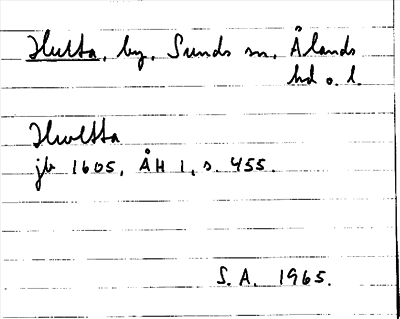 Hulta, by, Sunds sn, Ålands
hd o. l.
Hwltta
jb 1605, ÅH 1, s. 455.
S. A. 1965.